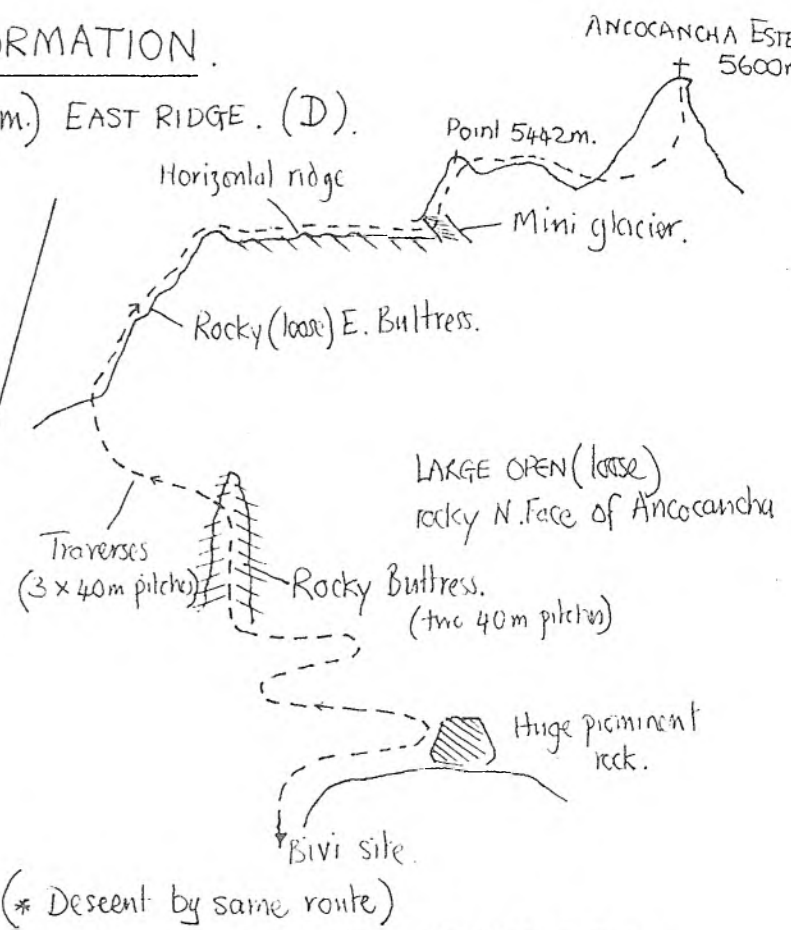 ORMATION.
ANCOCANCHA ESTE
5600m
m.) EAST RIDGE. (D).
Point 5442m.
Horizontal ridge
Mini glacier.
Rocky (loose) E. Buttress.
LARGE OPEN (loose)
rocky N. Face of Ancocancha
Traverses
(3 x 40m pitches)
Rocky Buttress.
(two 40m pitches)
Huge prominent
rock.
Bivi site.
(* Descent by same route)